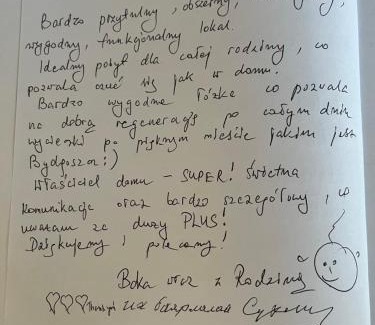 Bardzo przytulny, obszerny,
wygodny, funkcjonalny lokal.
Idealny pobyt dla całej rodziny, co
pozwala czuć się jak w domu.
Bardzo wygodne łóżka co pozwala
na dobrą regenerację po całym dniu
wycieczki po pięknym mieście jakim jest
Bydgoszcz :)
Właściciel domu - SUPER! Świetna
komunikacja oraz bardzo szczegółowy, co
uważam za duży PLUS!
Dziękujemy i polecamy!
wraz z Rodziną